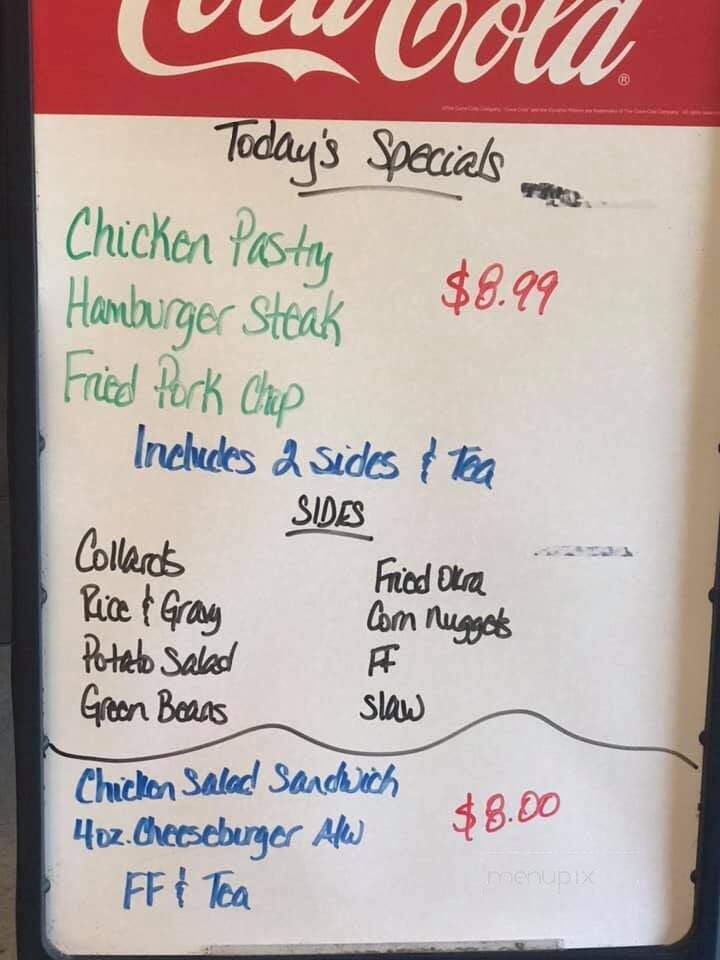 Coca Cola®
Today's Specials
Chicken Pastry
Hamburger Steak
$8.99
Fried Pork Chop
Includes 2 sides & Tea
SIDES
Collards
Rice & Gravy
Potato Salad
Green Beans
Fried Okra
Corn Nuggets
FF
Slaw
Chicken Salad Sandwich
4oz. Cheeseburger A/W
$8.00
FF & Tea
menupix